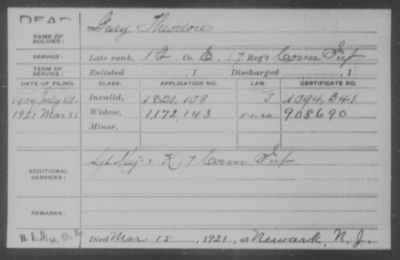 DEAD
NAME OF SOLDIER: Gray Theodore
SERVICE: Late rank, Co. E, 17 Reg't Conn Inf
TERM OF SERVICE: Enlisted , 1 Discharged , 1
DATE OF FILING. CLASS. APPLICATION NO. LAW. CERTIFICATE NO.
1904 July Invalid, 1321,108 1094,341
1921 Mar 31 Widow, 1172,143 908690
Minor,
ADDITIONAL SERVICES: Sgt Maj & K 17 Conn Inf
REMARKS:
Died Mar 15, 1921, at Newark, N. J.